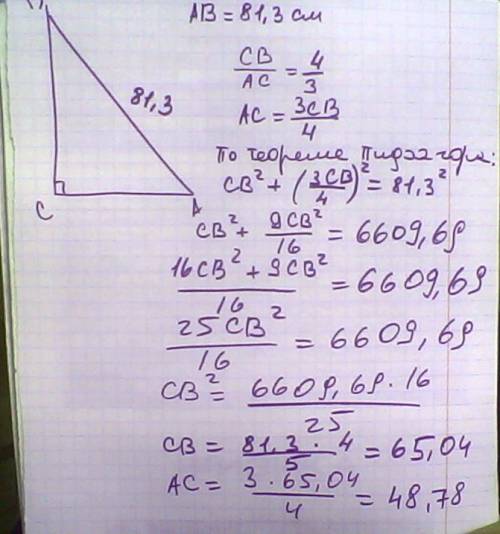 AB = 81,3 см
CB/AC = 4/3
81,3
AC = 3CB/4
По теореме Пифагора:
CB² + (3CB/4)² = 81,3²
C
A
CB² + 9CB²/16 = 6609,69
16CB² + 9CB²/16 = 6609,69
25CB²/16 = 6609,69
CB² = 6609,69·16/25
CB = 81,3·4/5 = 65,04
AC = 3·65,04/4 = 48,78